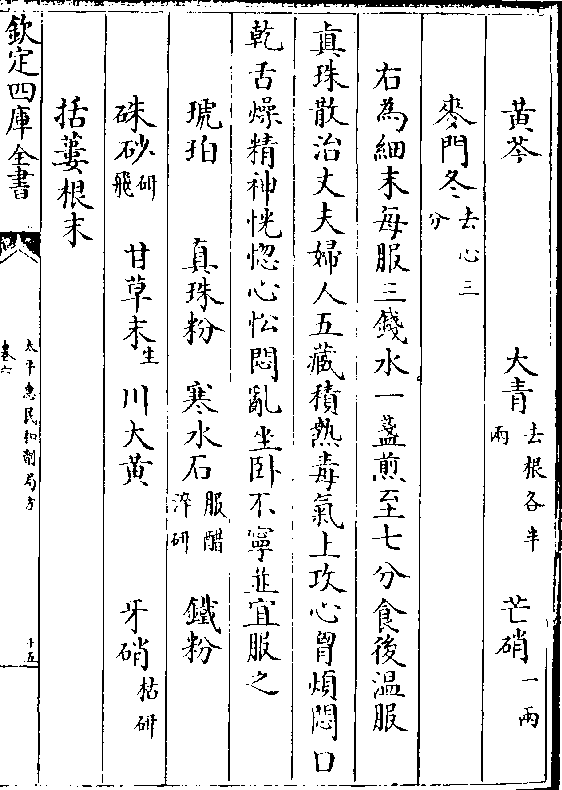 黃芩 大青去根各半兩 芒硝一兩
麥門冬去心三分
右為細末每服三錢水一盞煎至七分食後溫服
真珠散治丈夫婦人五藏積熱毒氣上攻心胷煩悶口
乾舌燥精神恍惚心忪悶亂坐卧不寧並宜服之
琥珀 真珠粉 寒水石服醋淬研 鐵粉
硃砂研飛 甘草末生 川大黃 牙硝枯研
括蔞根末
欽定四庫全書
太平惠民和劑局方
卷六
十五